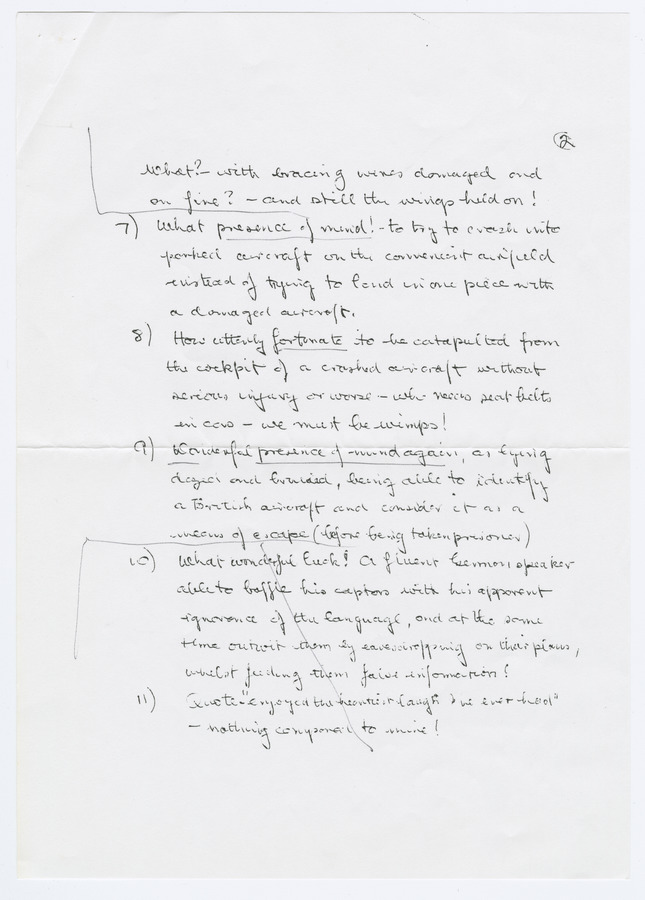 2
What? - with bracing wires damaged and
on fire? - and still the wings held on!
7) What presence of mind! - to try to crash into
parked aircraft on the convenient airfield
instead of trying to land in one piece with
a damaged aircraft.
8) How utterly fortunate to be catapulted from
the cockpit of a crashed aircraft without
serious injury or worse - who needs seat belts
in cars - we must be wimps!
9) Wonderful presence of mind again, as lying
dazed and bruised, being able to identify
a British aircraft and consider it as a
means of escape (before being taken prisoner)
10) What wonderful luck! A fluent German speaker
able to baffle his captors with his apparent
ignorance of the language, and at the same
time outwit them by eavesdropping on their plans,
whilst feeding them false information!
11) Quote "enjoyed the heartiest laugh I've ever had"
- nothing compared to mine!